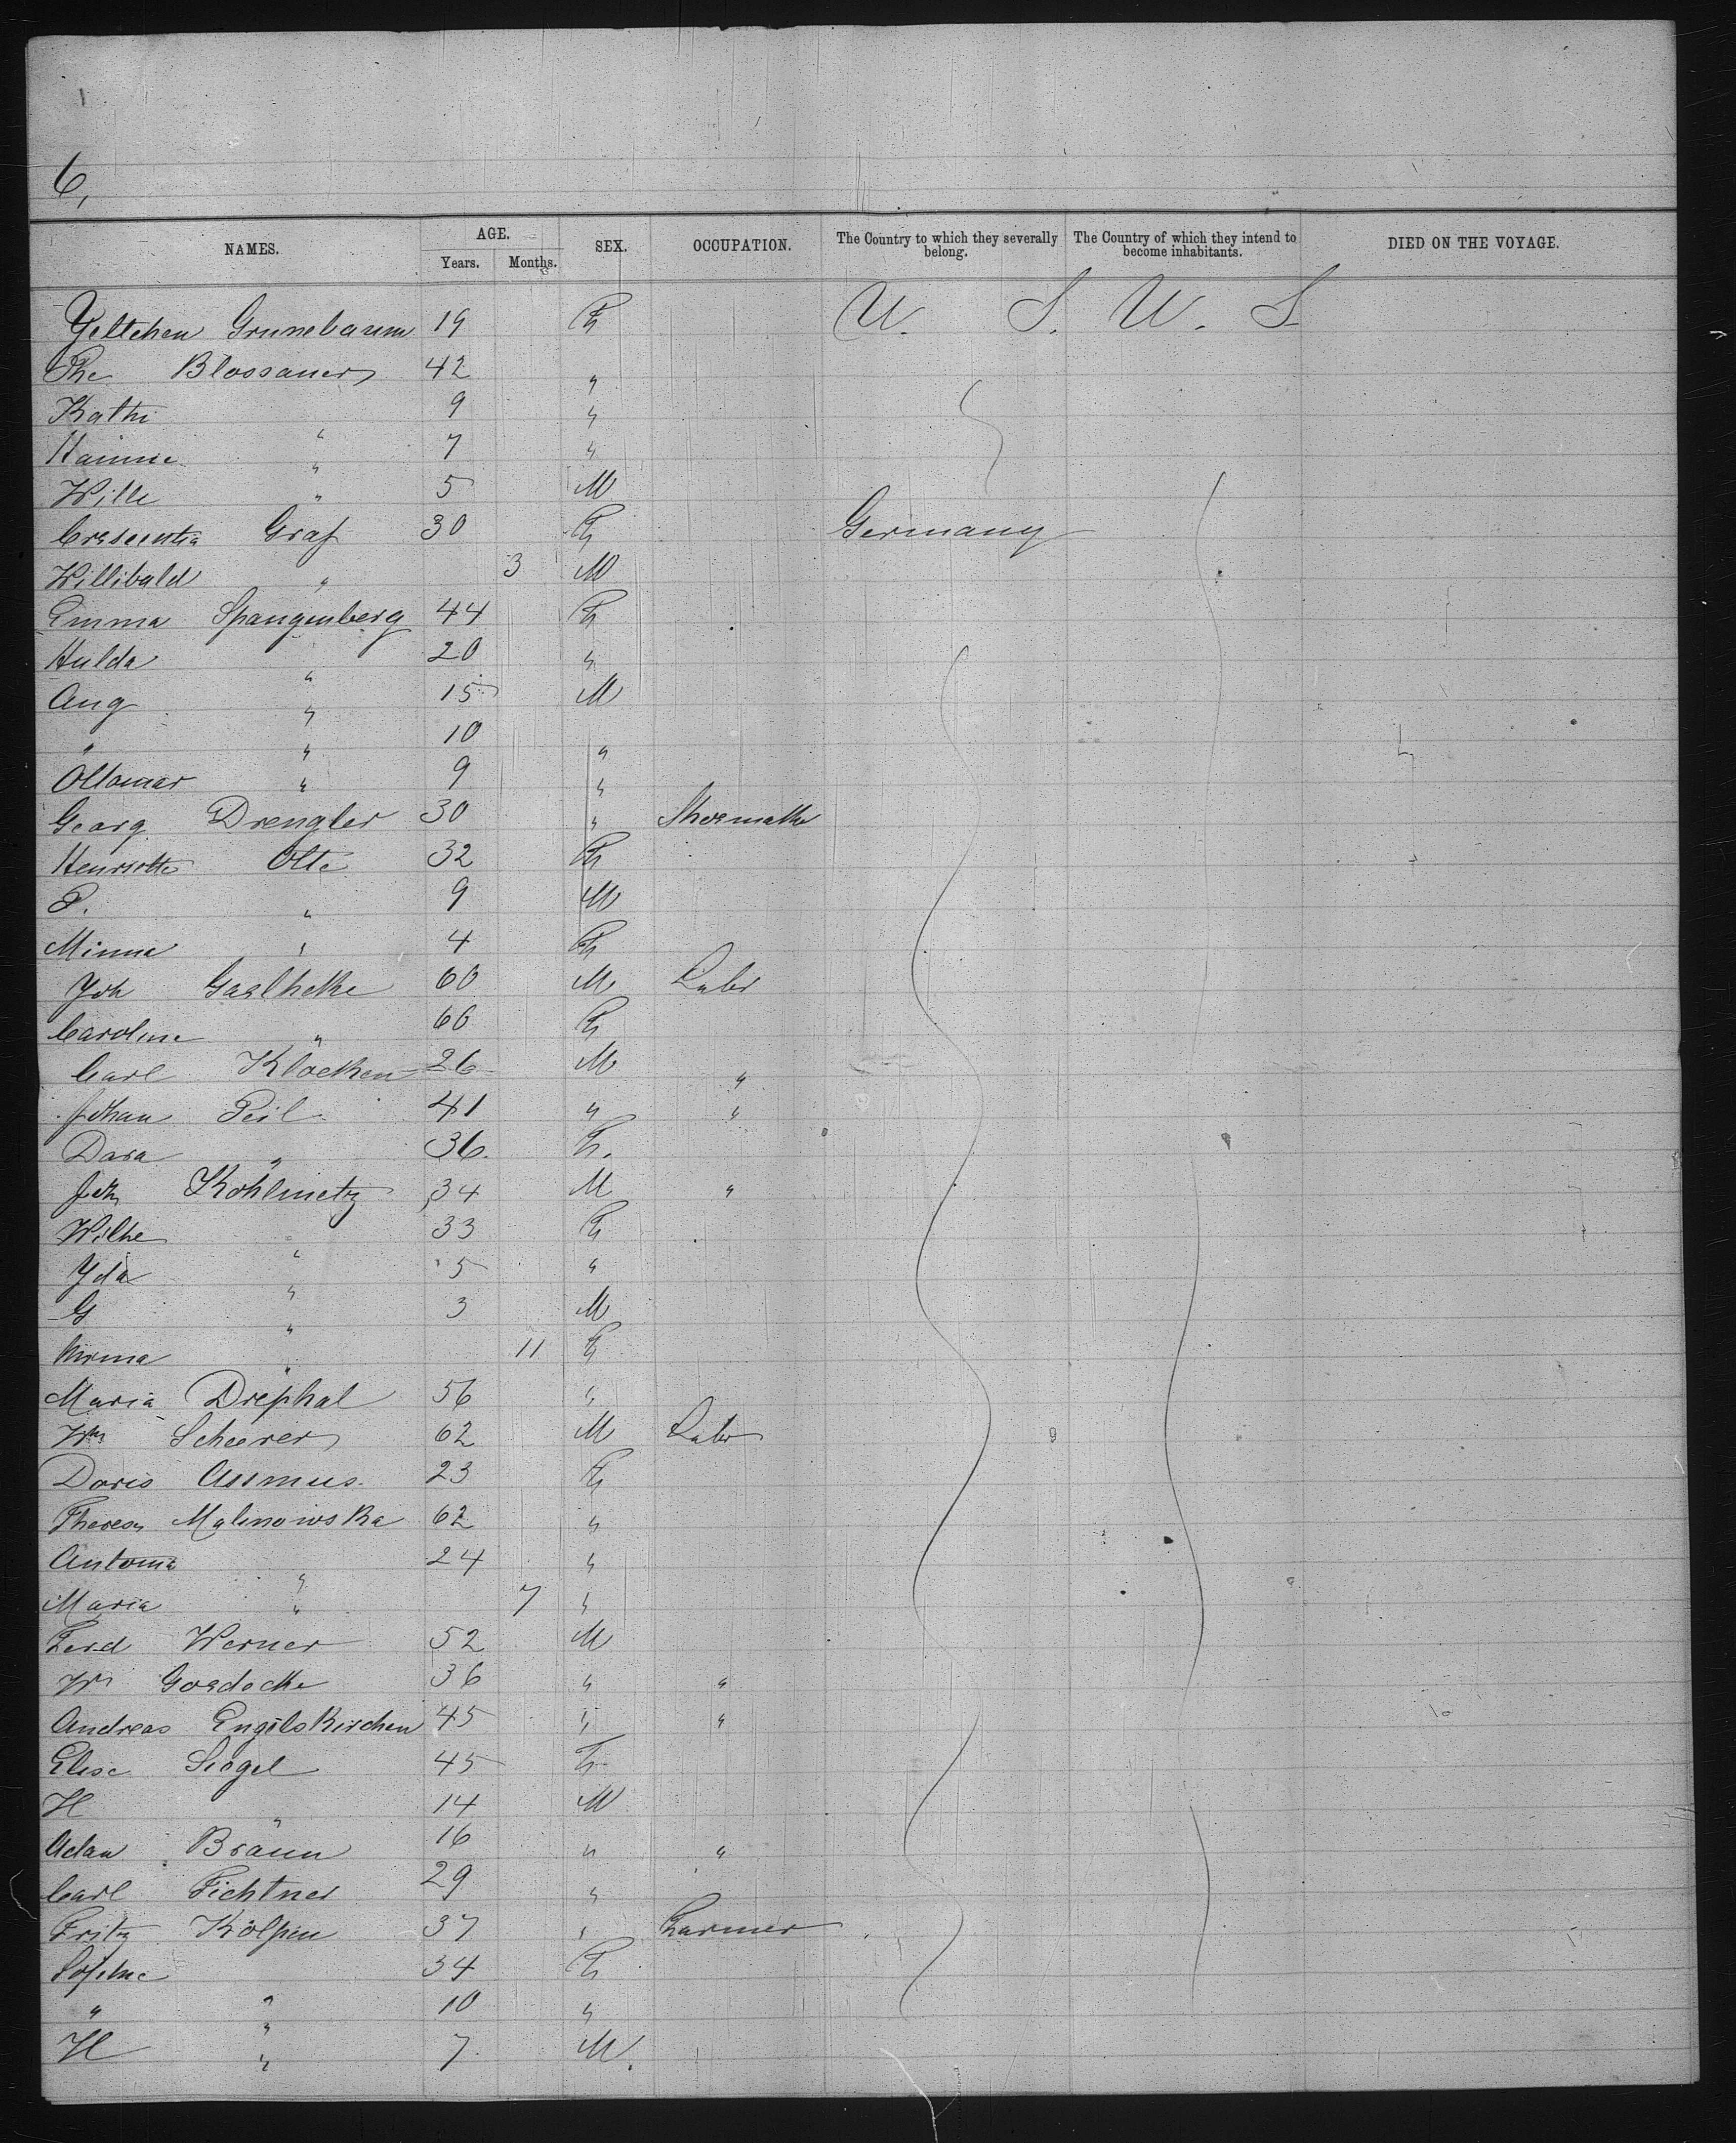 6,
NAMES. AGE. Years. Months. SEX. OCCUPATION. The Country to which they severally belong. The Country of which they intend to become inhabitants. DIED ON THE VOYAGE.
Yettchen Grunebaum 19 F U. S. U. S
Phe Blossauer 42 "
Kathi " 9 "
Hannie " 7 "
Wille " 5 M
Crescentia Graf 30 F Germany
Willibald " 3 M
Emma Spangenberg 44 F
Hulda " 20 "
Aug " 15 M
" " 10 "
Ottomar " 9 "
Georg Drengler 30 "
Henriette Otte 32 F
P. " 9 M
Minna " 4 F
Joh 60 M Labr
Caroline " 60 F
Carl Klocken 26 M "
Johan Peil 41 " "
Dora " 36. F.
Joh Kohlmetz 34 M "
Wilhe " 33 F
Yda " 5 "
G " 3 M
" 11 F
Maria Drephal 56 "
Wm Scheerer 62 M Labr
Doris Assmus 23 F
Theresa Malinowska 62 "
Antonia " 24 "
Maria " 7 "
Ferd Werner 52 M
Wm Goedecke 36 " "
Andreas Engelskirchen 45 " "
Elise Siegel 45 F
H " 14 M
Adam Braun 16 " "
Carl Fichtner 29 "
Fritz Kölpin 37 " Farmer
Sophie " 34 F
" " 10 "
H " 7 M.